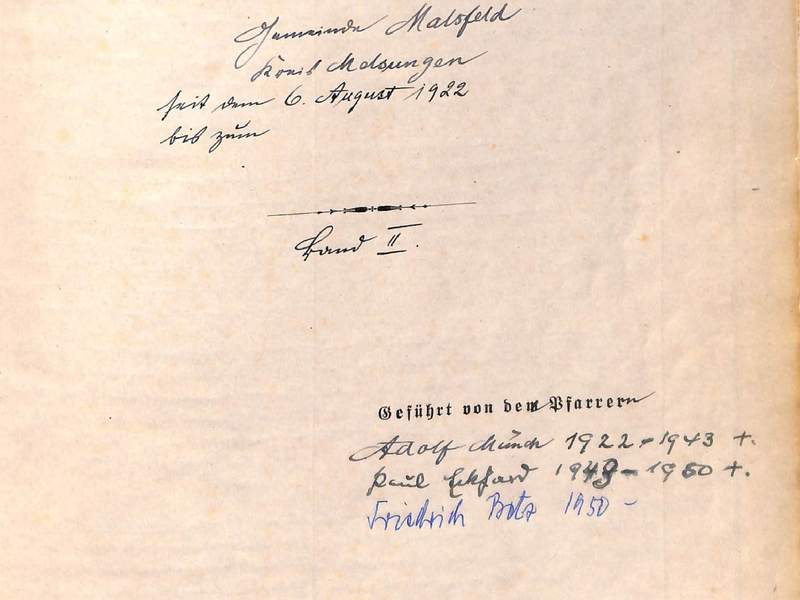 Gemeinde Malsfeld
Kreis Melsungen
seit dem 6. August 1922
bis zum
Band II.
Geführt von den Pfarrern
Adolf Münch 1922-1943 +.
Paul Eckhard 1949-1950 +.
Friedrich Botz 1950 -